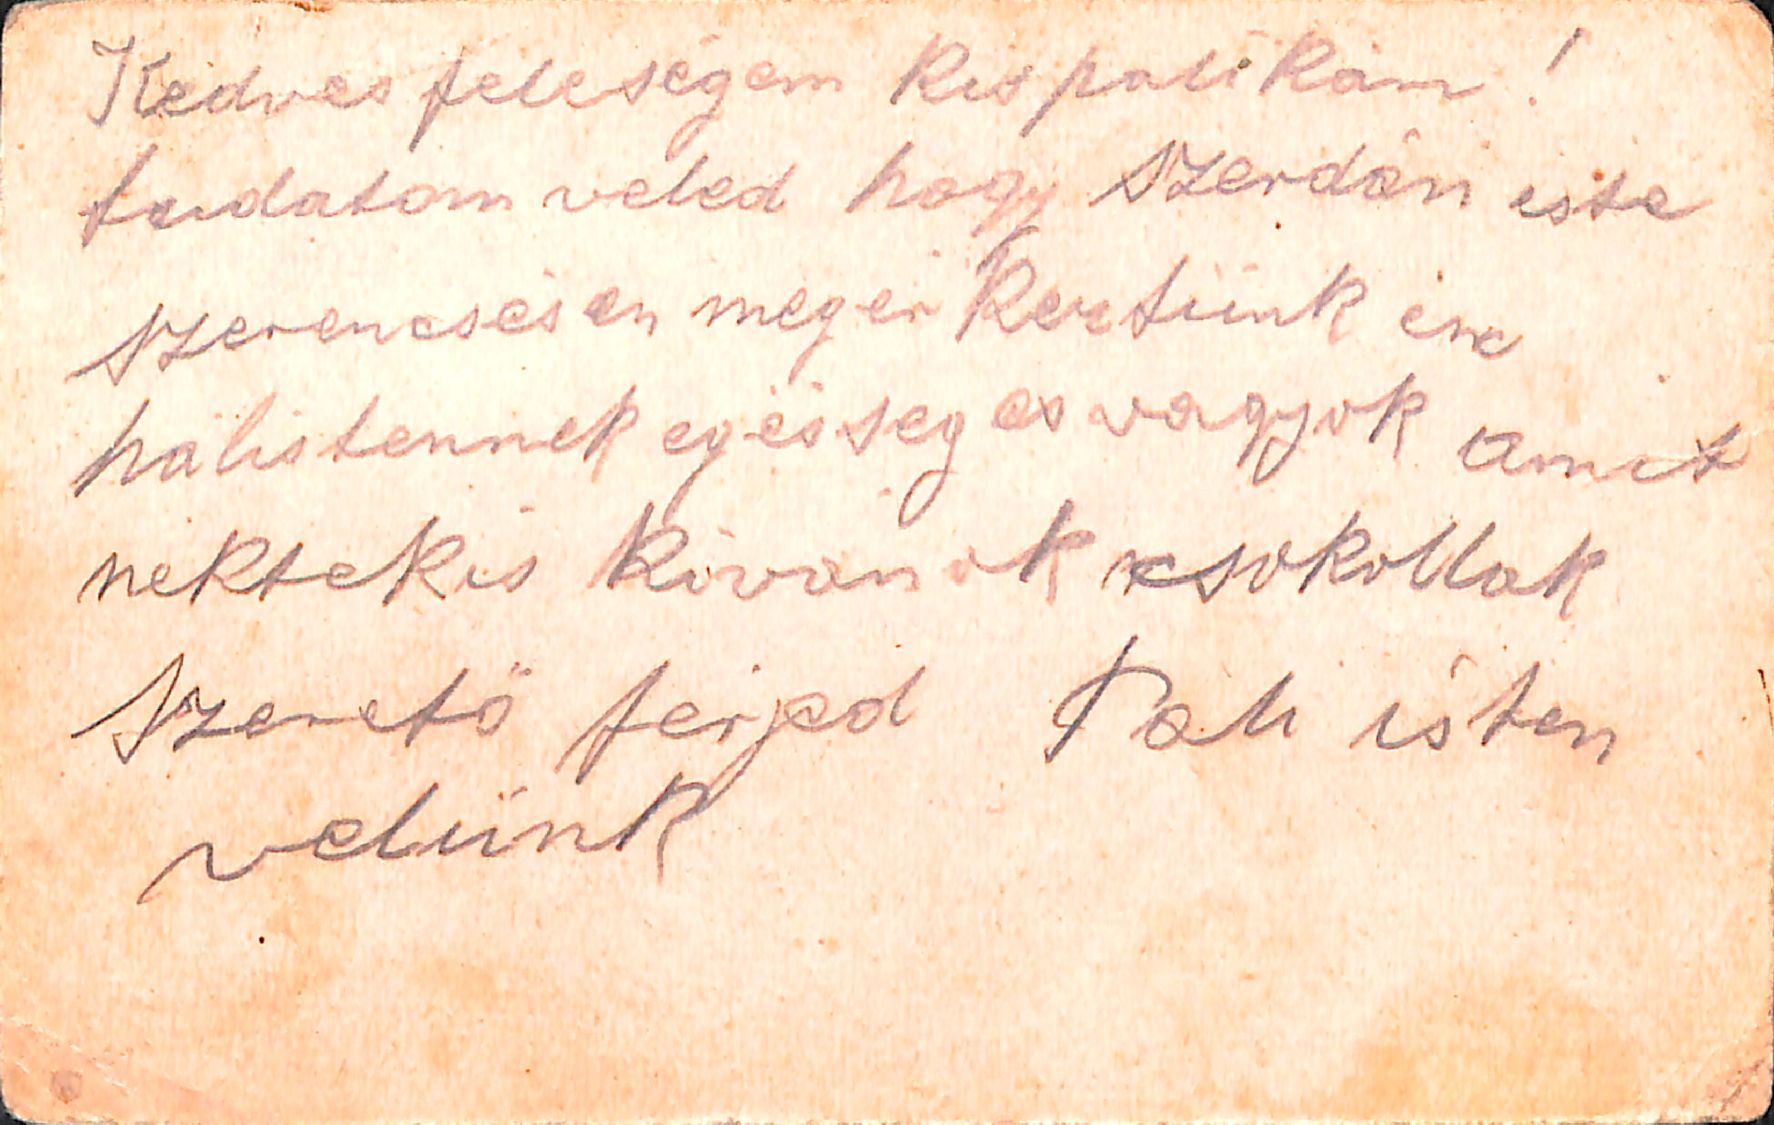 Kedves feleségem Kis palikám!
tudatom veled hogy szerdán este
szerencsésen megérkeztünk én
hálistennek egésséges vagyok amit
nektekis kivánok csokollak
szerető férjed Pali isten
velünk